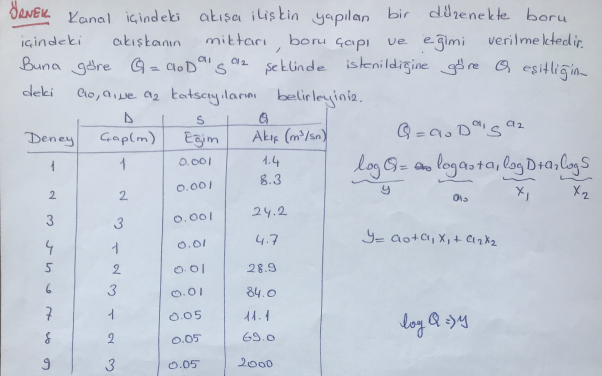 ÖRNEK Kanal içindeki akışa ilişkin yapılan bir düzenekte boru
içindeki akışkanın miktarı, boru çapı ve eğimi verilmektedir.
Buna göre Q = a0 D^a1 S^a2 şeklinde istenildiğine göre Q eşitliğin-
deki a0, a1, ve a2 katsayılarını belirleyiniz.
D S Q
Deney Çap(m) Eğim Akış (m³/sn)
1 1 0.001 1.4
2 2 0.001 8.3
3 3 0.001 24.2
4 1 0.01 4.7
5 2 0.01 28.9
6 3 0.01 84.0
7 1 0.05 11.1
8 2 0.05 69.0
9 3 0.05 2000
Q = a0 D^a1 S^a2
log Q = log a0 + a1 log D + a2 log S
y a0 x1 x2
y = a0 + a1 x1 + a2 x2
log Q => y